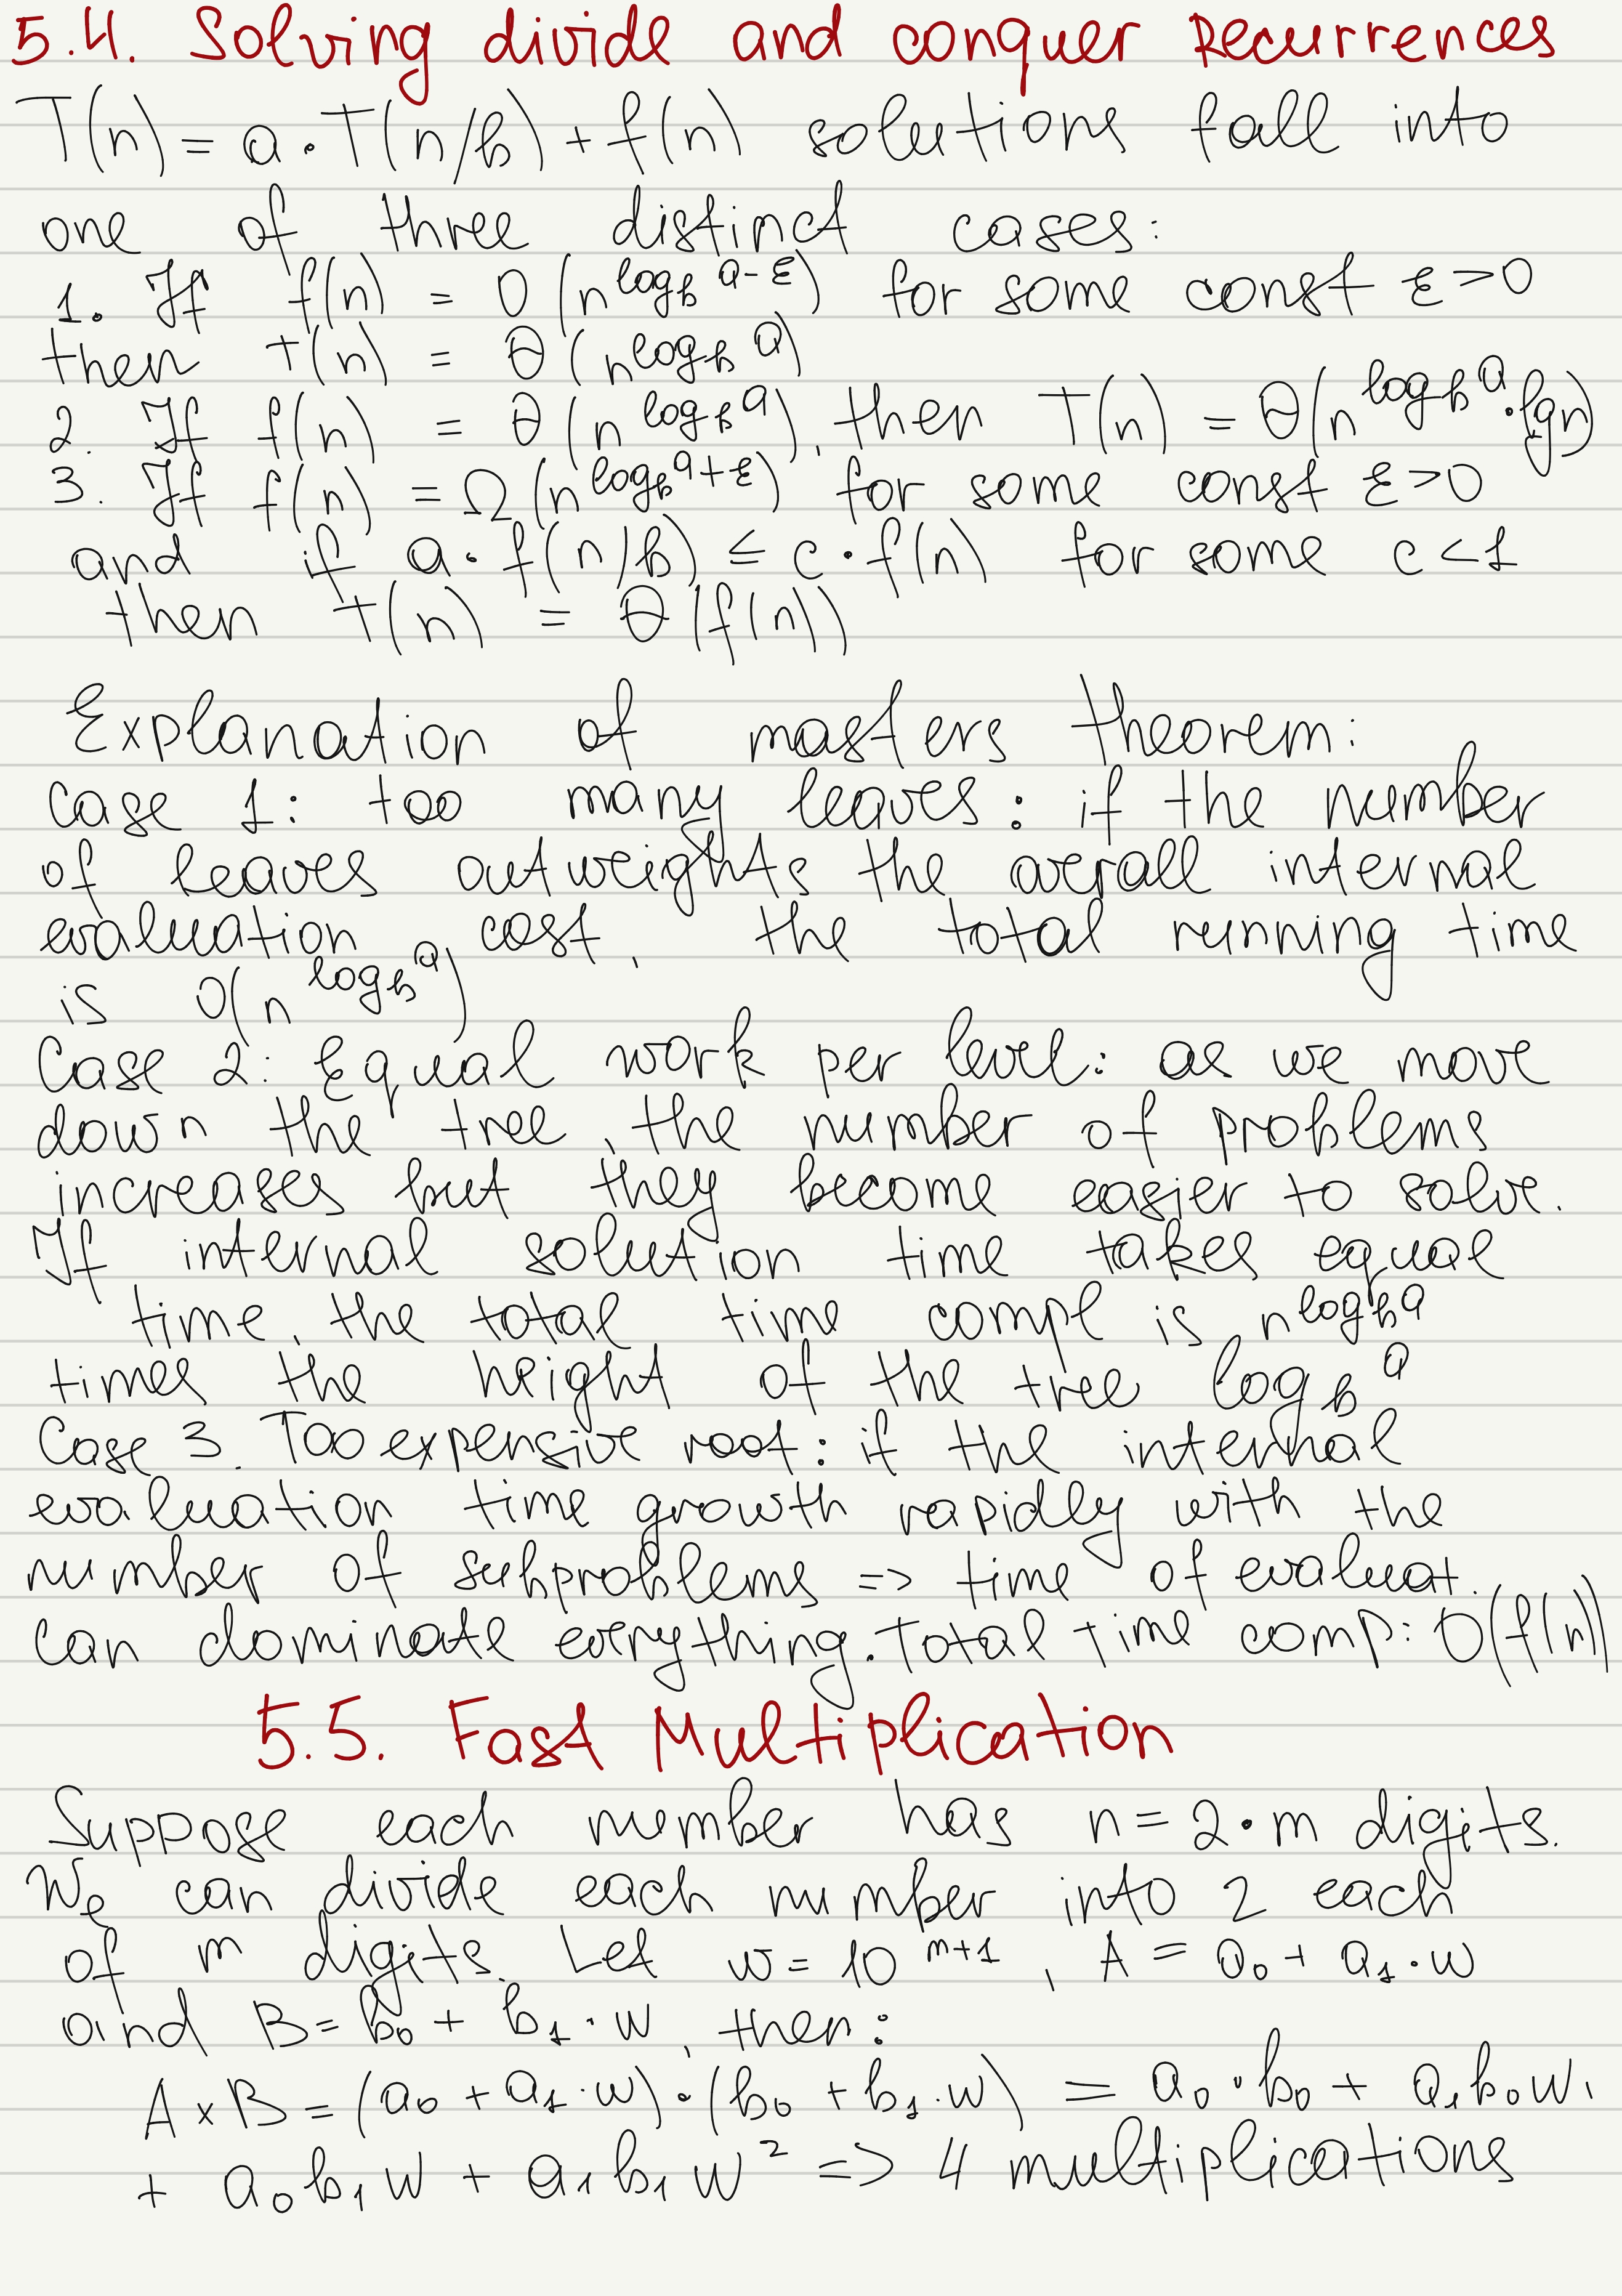 5.4. Solving divide and conquer Recurrences
T(n) = a·T(n/b) + f(n) solutions fall into
one of three distinct cases:
1. If f(n) = O(n^(log_b a-ε)) for some const ε>0
then T(n) = Θ(n^(log_b a))
2. If f(n) = Θ(n^(log_b a)), then T(n) = Θ(n^(log_b a)·lgn)
3. If f(n) = Ω(n^(log_b a+ε)) for some const ε>0
and if a·f(n/b) ≤ c·f(n) for some c<1
then T(n) = Θ(f(n))
Explanation of masters theorem:
Case 1: too many leaves: if the number
of leaves outweights the overall internal
evaluation cost, the total running time
is O(n^(log_b a))
Case 2: Equal work per level: as we move
down the tree, the number of problems
increases but they become easier to solve.
If internal solution time takes equal
time, the total time compl is n^(log_b a)
times the height of the tree log_b a
Case 3. Too expensive root: if the internal
evaluation time growth rapidly with the
number of subproblems => time of evaluat.
can dominate everything. Total time comp: O(f(n))
5.5. Fast Multiplication
Suppose each number has n = 2·m digits.
We can divide each number into 2 each
of m digits. Let w = 10^(m+1), A = a₀ + a₁·w
and B = b₀ + b₁·w, then:
A × B = (a₀ + a₁·w)·(b₀ + b₁·w) = a₀·b₀ + a₁b₀w,
+ a₀b₁w + a₁b₁w² => 4 multiplications